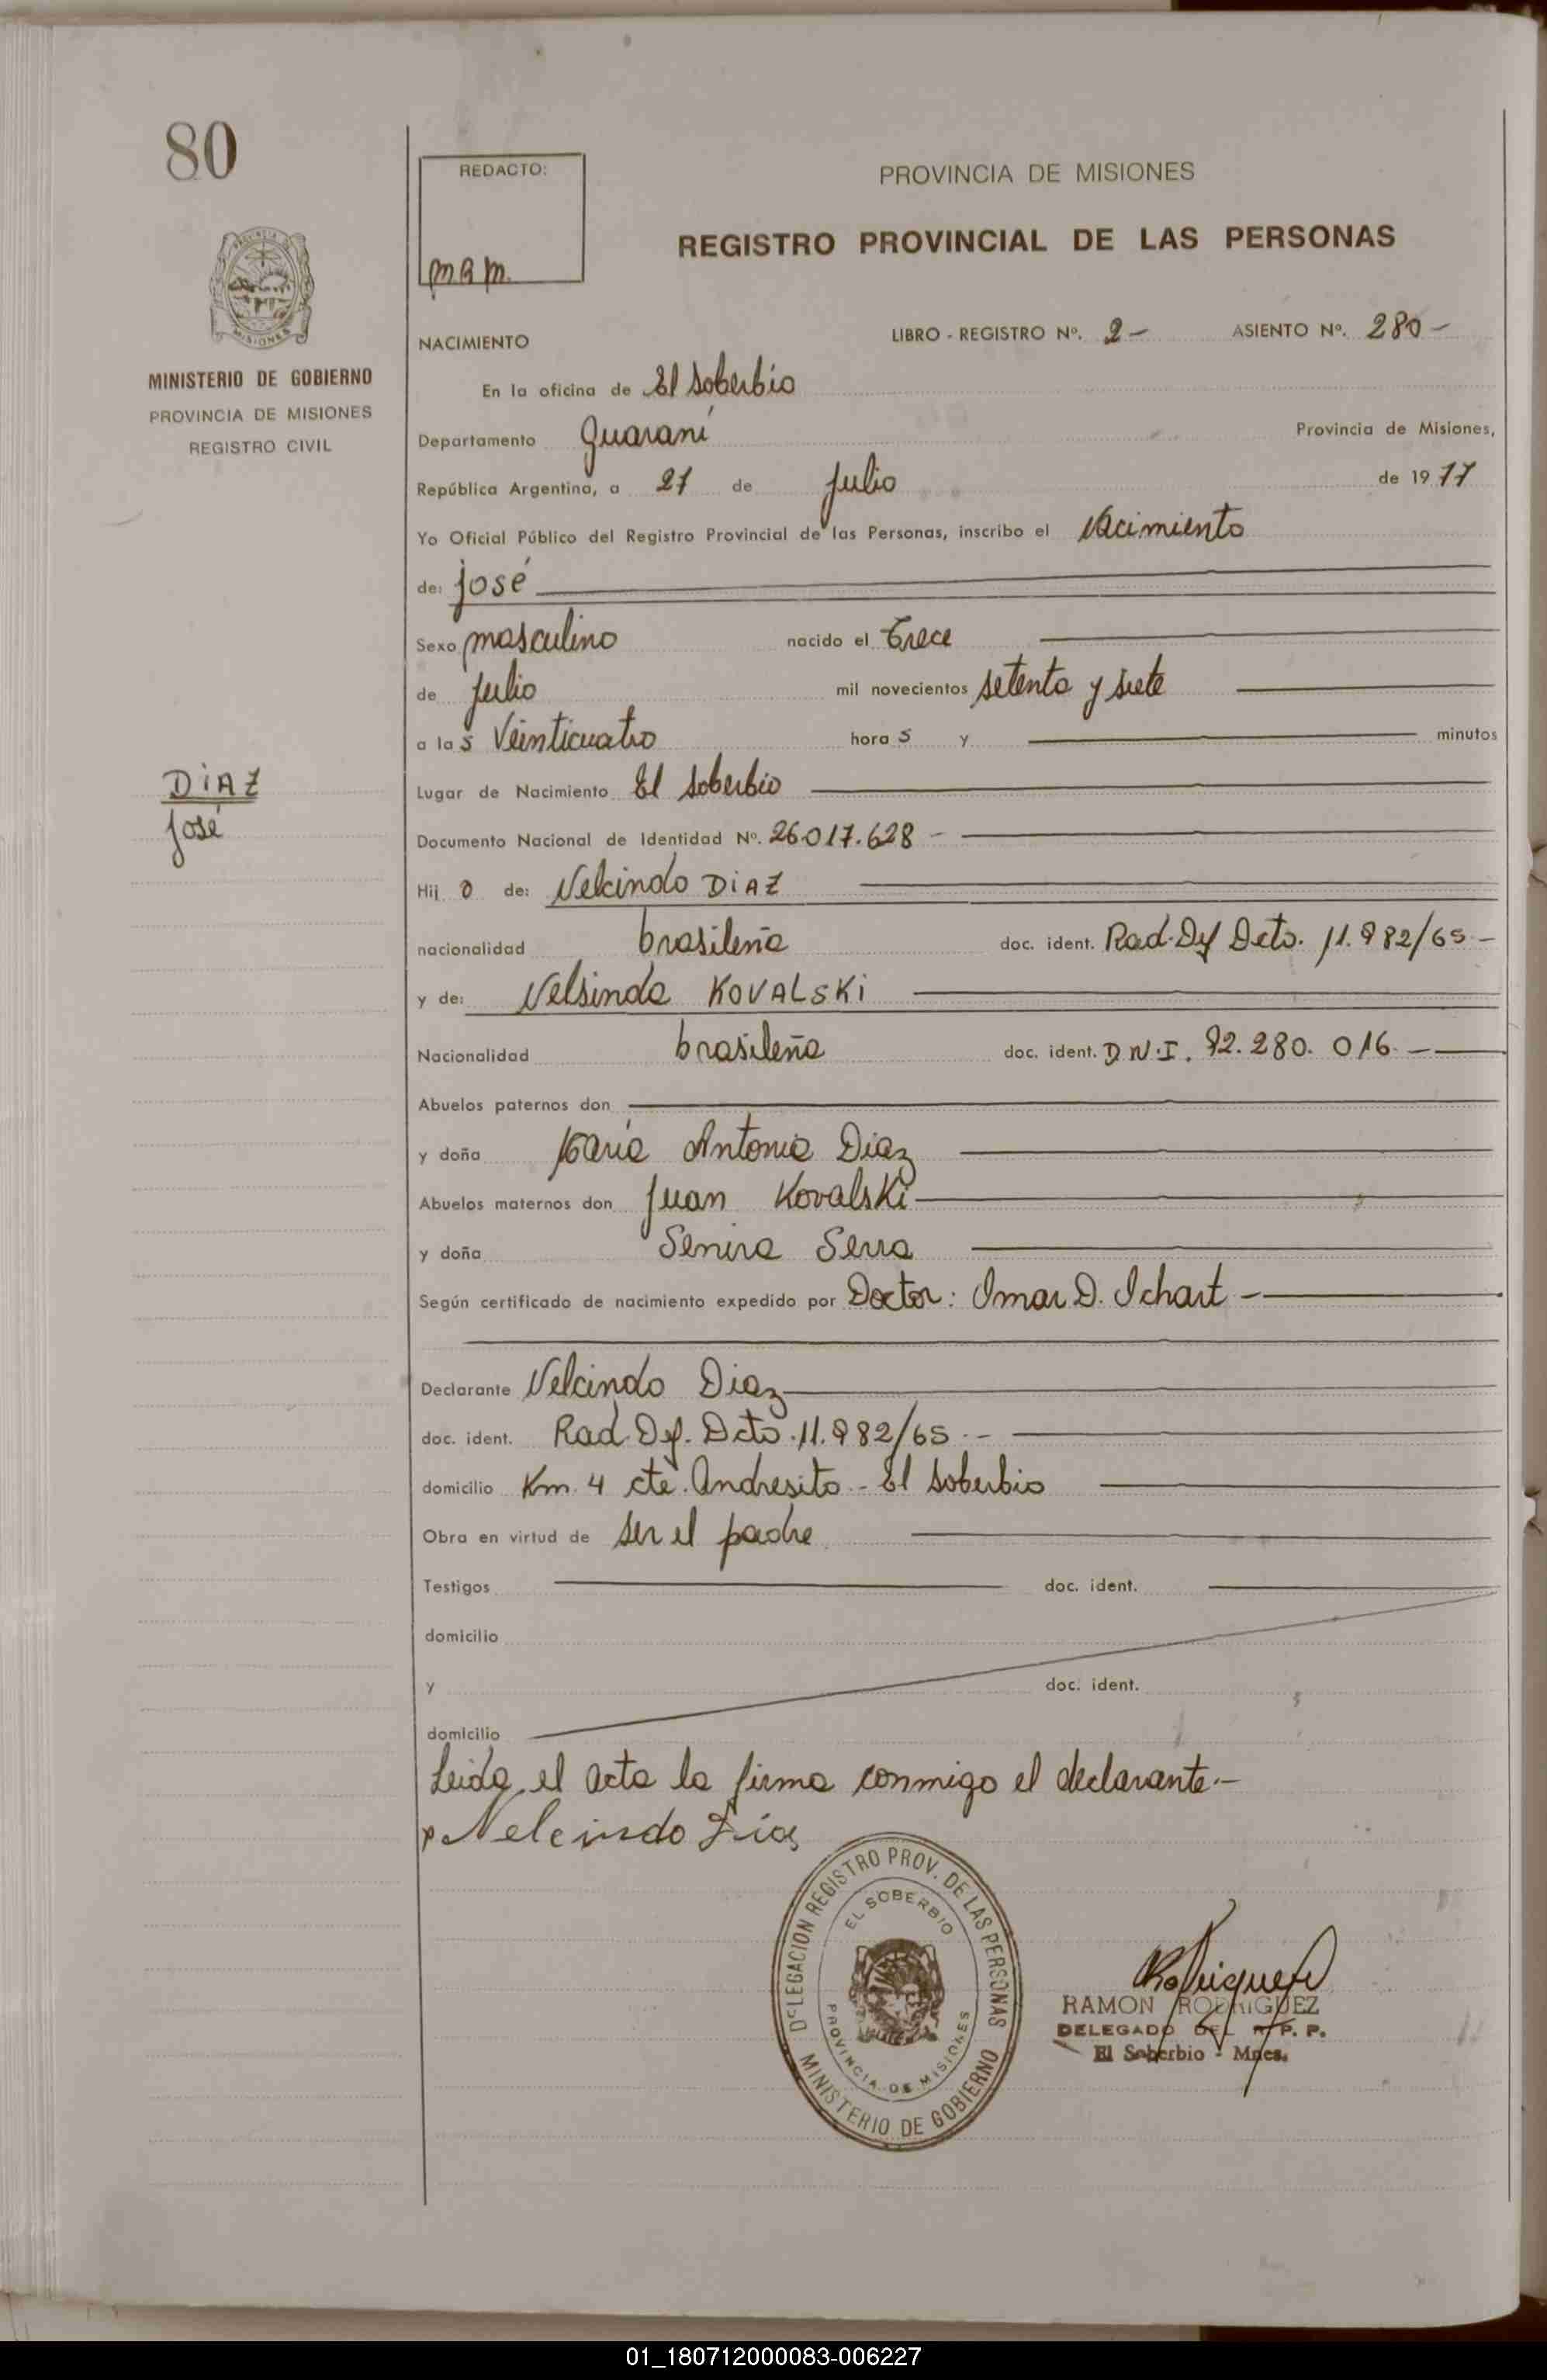 80
REDACTO:
m a m.
PROVINCIA DE MISIONES
REGISTRO PROVINCIAL DE LAS PERSONAS
MINISTERIO DE GOBIERNO
PROVINCIA DE MISIONES
REGISTRO CIVIL
NACIMIENTO
LIBRO - REGISTRO Nº. 2 - ASIENTO Nº. 280 -
En la oficina de El Soberbio
Departamento Guaraní Provincia de Misiones,
República Argentina, a 27 de Julio de 1977
Yo Oficial Público del Registro Provincial de las Personas, inscribo el Nacimiento
de: José
Sexo masculino nacido el Trece
de Julio mil novecientos setenta y siete
a las Veinticuatro horas y minutos
DIAZ
José
Lugar de Nacimiento El Soberbio
Documento Nacional de Identidad Nº. 26.017.628 -
Hijo de: Nelcindo DIAZ
nacionalidad brasileña doc. ident. Rad. Def Dcto. 11.982/65 -
y de: Nelsinda KOVALSKI
Nacionalidad brasileña doc. ident. D.N.I. 92.280.016 -
Abuelos paternos don
y doña María Antonia Diaz
Abuelos maternos don Juan Kovalski
y doña Serra
Según certificado de nacimiento expedido por Doctor: Omar D. Ichart -
Declarante Nelcindo Diaz
doc. ident. Rad. Def. Dcto. 11.982/65 -
domicilio Km. 4 cte. Andresito - El Soberbio
Obra en virtud de ser el padre
Testigos doc. ident.
domicilio
y doc. ident.
domicilio
Leida el acta la firma conmigo el declarante.-
Nelcindo Dias
DELEGACION REGISTRO PROV. DE LAS PERSONAS
EL SOBERBIO
PROVINCIA DE MISIONES
MINISTERIO DE GOBIERNO
RAMON RODRIGUEZ
DELEGADO DEL R. P. P.
El Soberbio - Mnes.
01_180712000083-006227